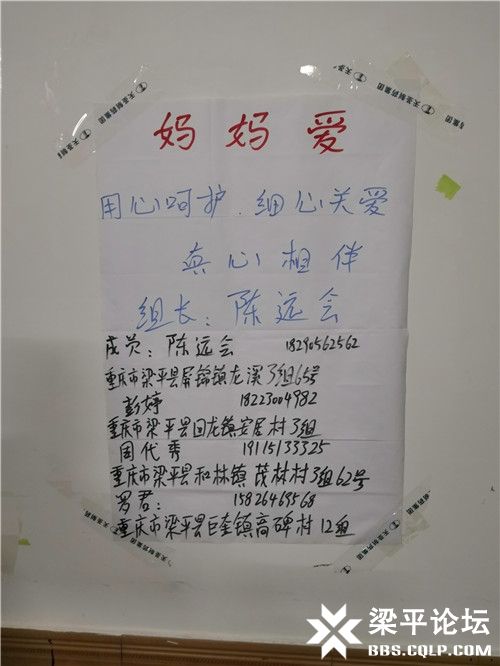 妈妈爱
用心呵护.细心关爱
真心相伴
组长:陈远会
成员:陈远会 18290562562
重庆市梁平县屏锦镇龙溪3组65号
彭婷 18223004982
重庆市梁平县回龙镇安居村3组
周代秀 19115133325
重庆市梁平县和林镇茂林村3组62号
罗君: 15826469568
重庆市梁平县巨奎镇高碑村12组
梁平论坛
BBS.CQLP.COM